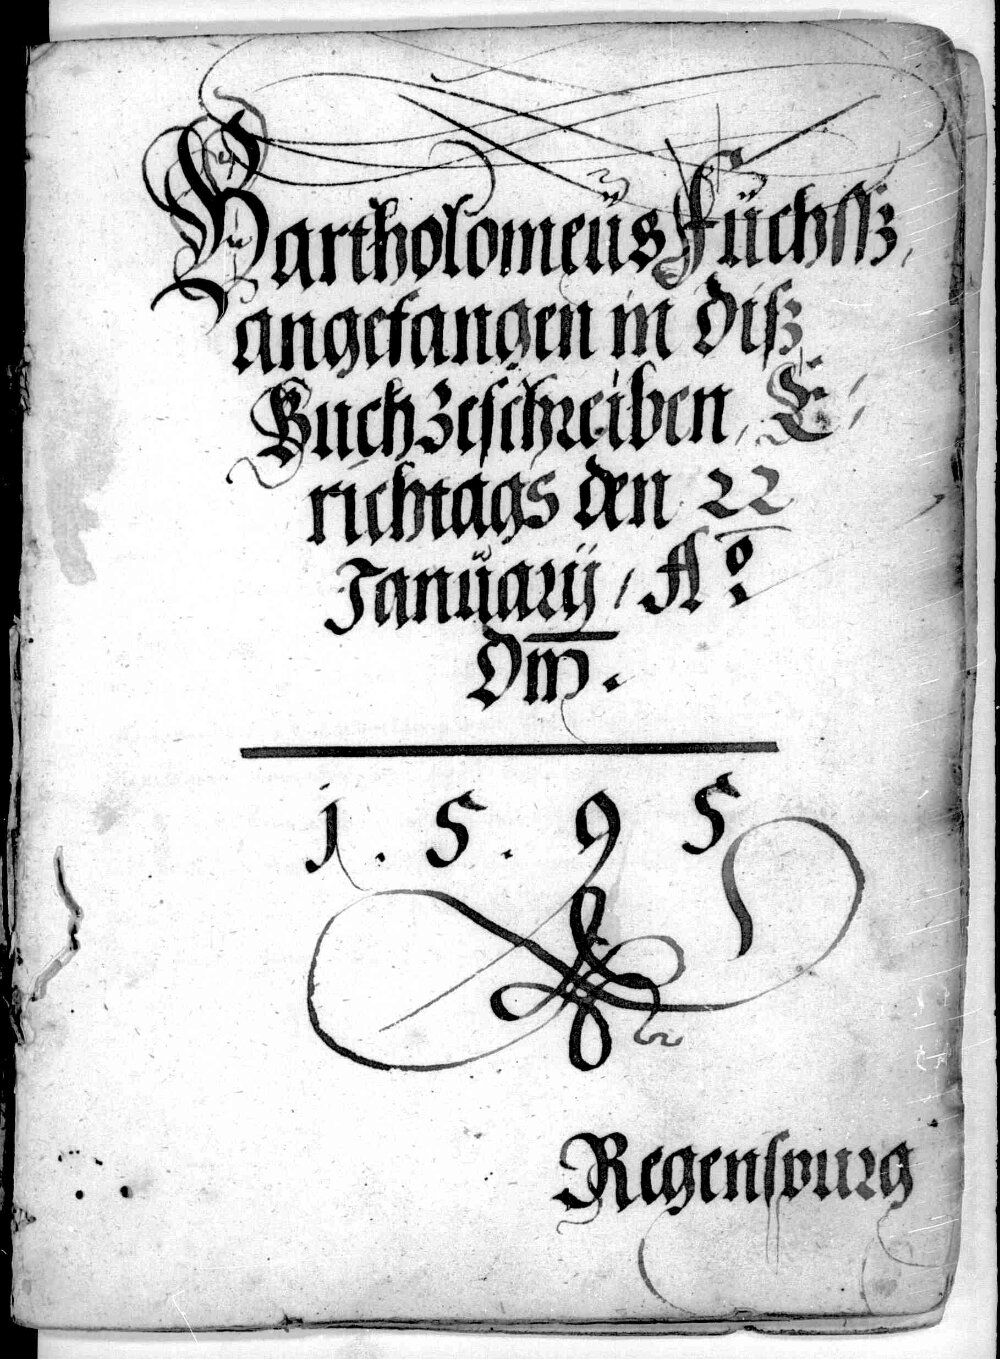 Bartholomeüs Füchsß,
angefangen in diß
Buch zeschreiben, E/
richtags den 22
Januarÿ / Aº
Dm̅.
1. 5. 9 5
Regenspurg